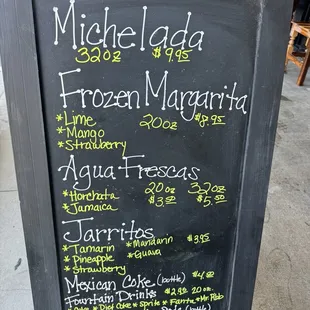 Michelada
32oz $9.95
Frozen Margarita
*Lime 20oz $8.95
*Mango
*Strawberry
Agua Frescas
20oz 32oz
*Horchata $3.50 $5.50
*Jamaica
Jarritos
*Tamarin *Mandarin $3.95
*Pineapple *Guava
*Strawberry
Mexican Coke (bottle) $4.50
Fountain Drinks $2.95 20oz.
*Coke *Diet Coke *Sprite *Fanta *Mr Pibb
(bottle)